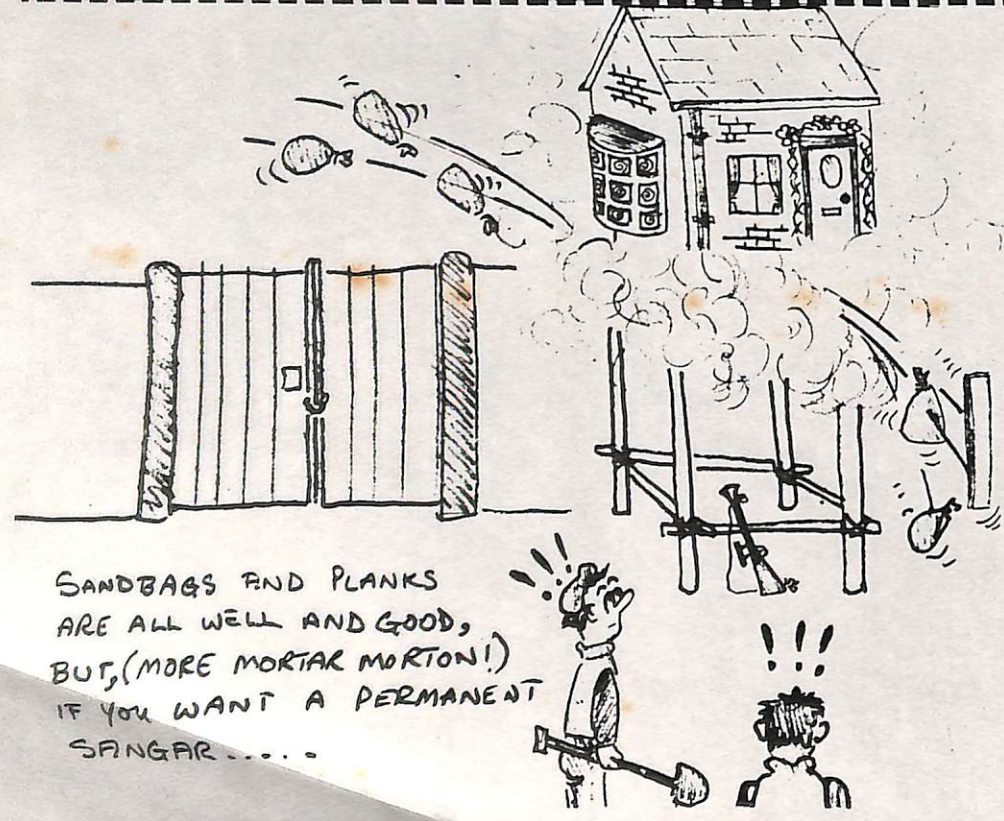 SANDBAGS AND PLANKS
ARE ALL WELL AND GOOD,
BUT, (MORE MORTAR MORTON!)
IF YOU WANT A PERMANENT
SANGAR.....
!!!
!!!